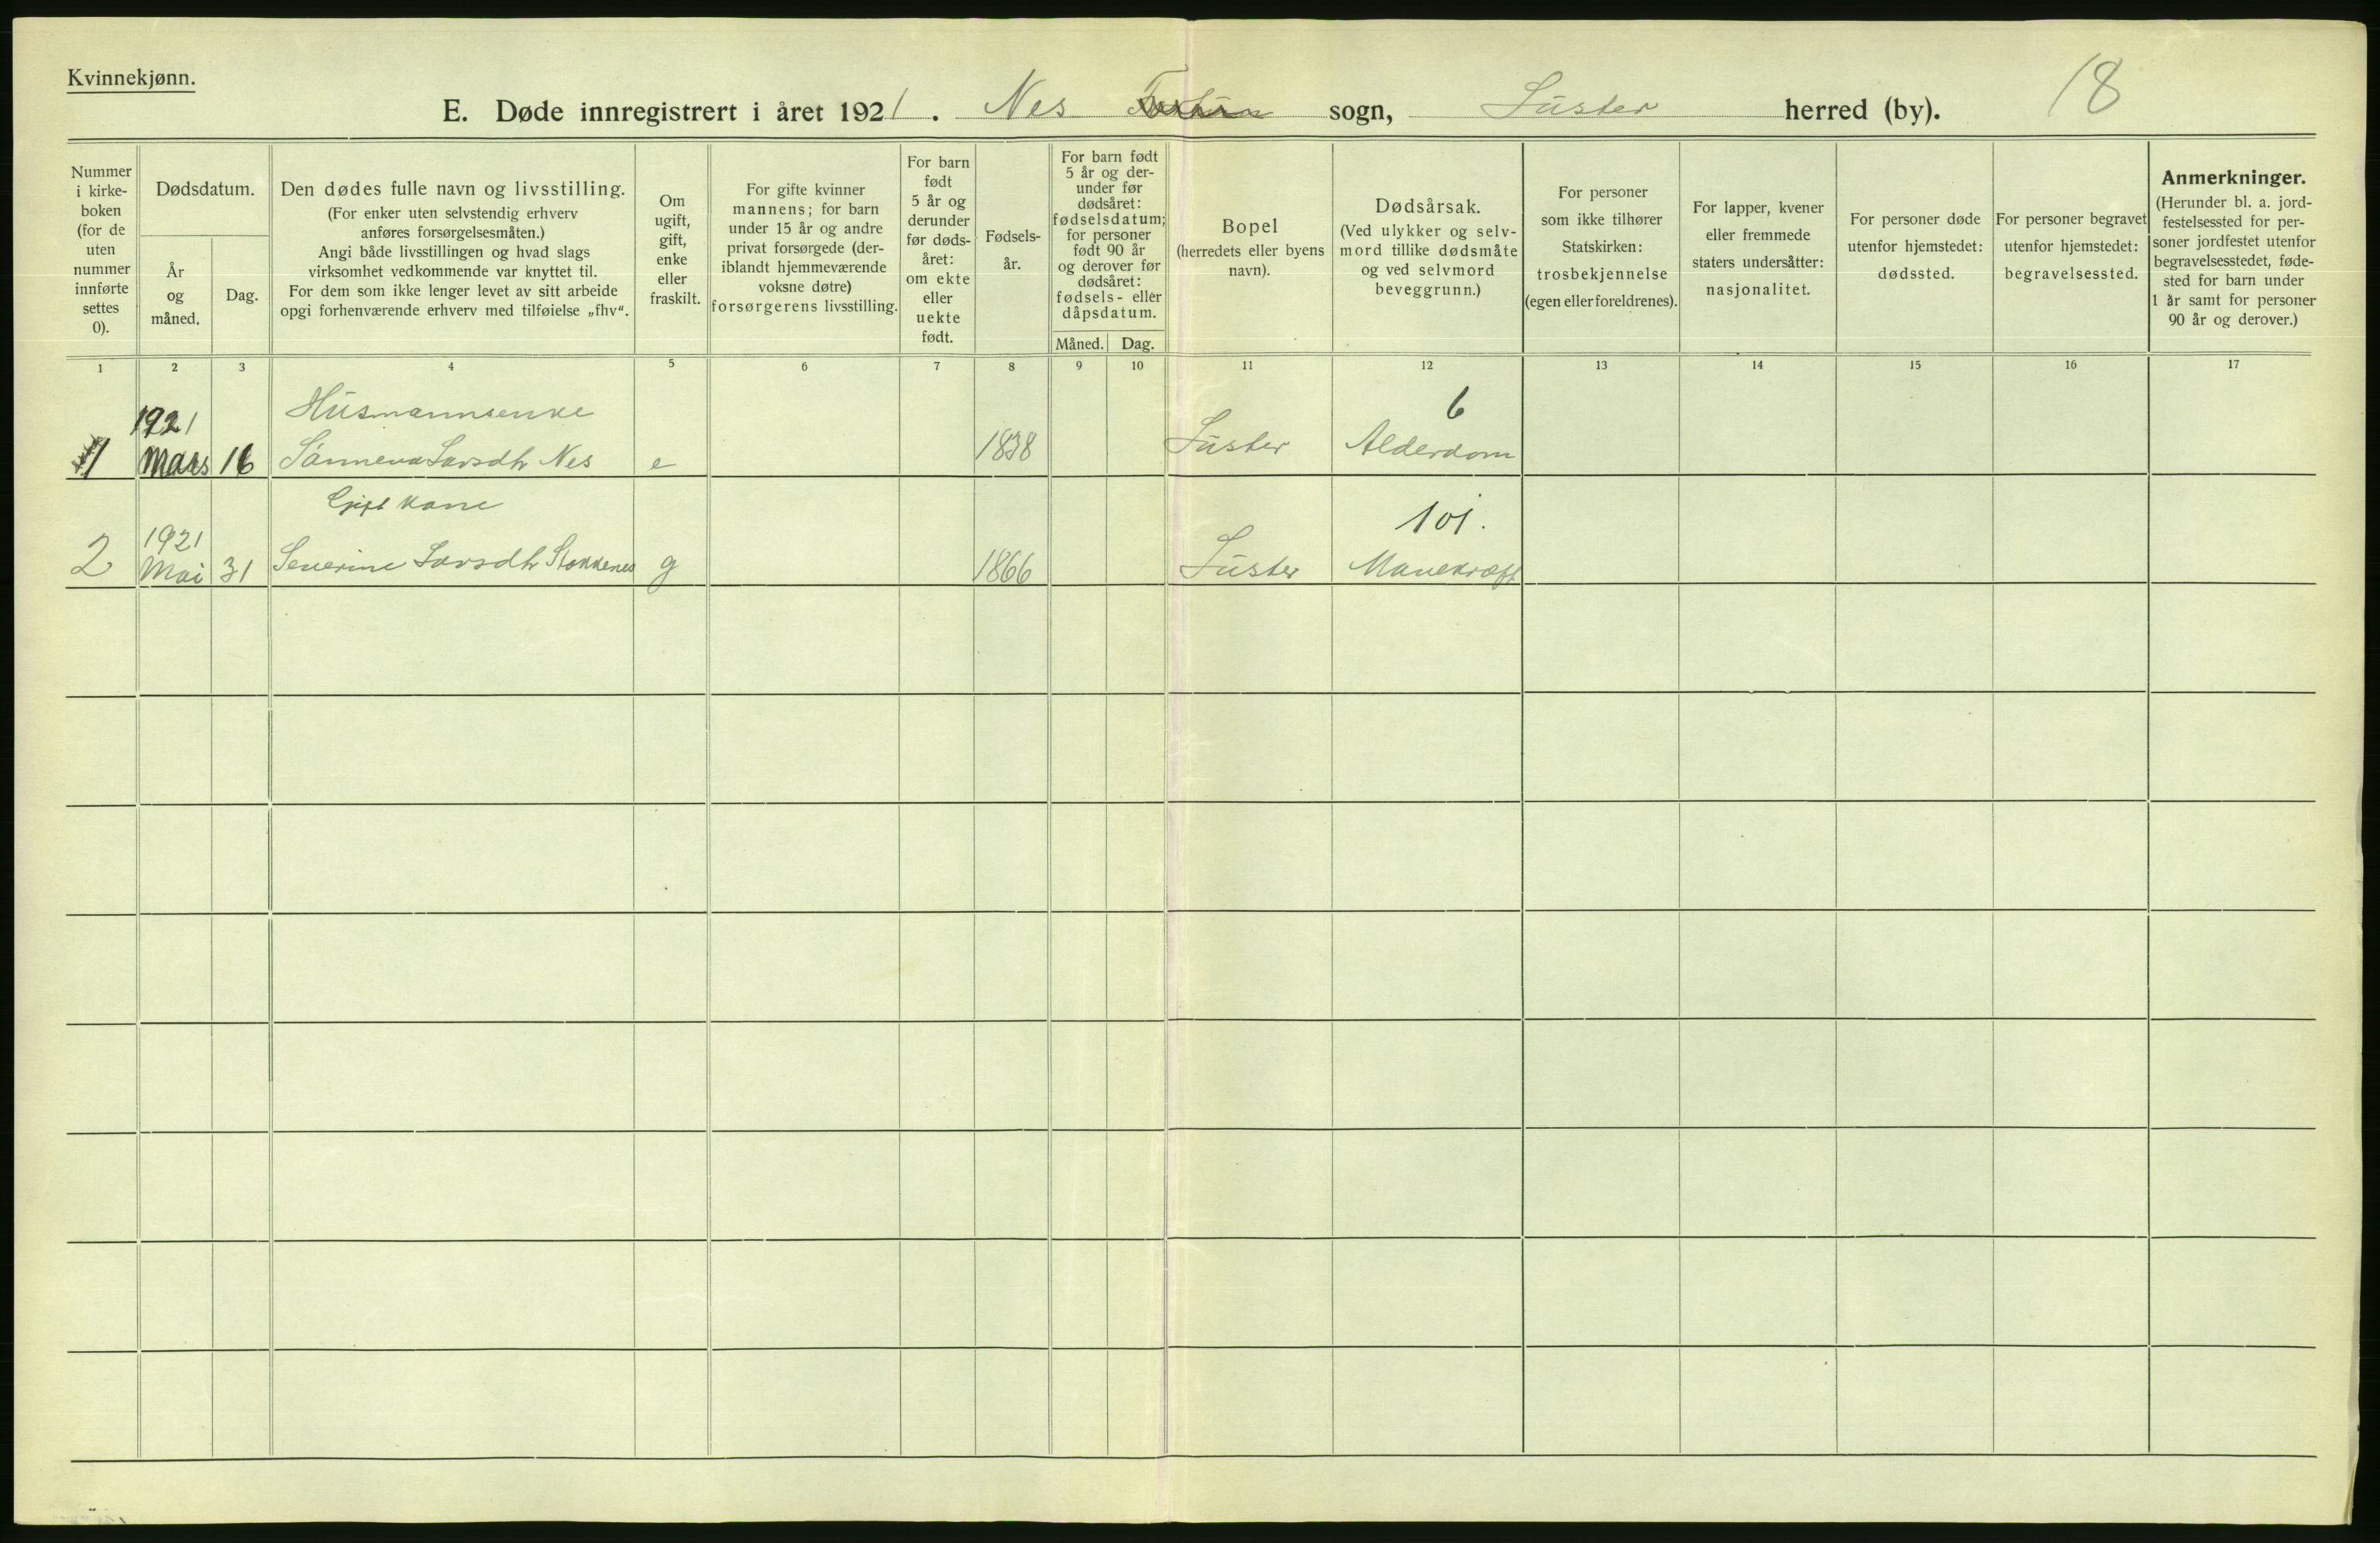 Kvinnekjønn.
E. Døde innregistrert i året 1921. Nes sogn, Lúster herred (by). 18
Nummer
i kirke-
boken
(for de
uten
nummer
innførte
settes
0).
Dødsdatum.
År
og
måned.
Dag.
Den dødes fulle navn og livsstilling.
(For enker uten selvstendig erhverv
anføres forsørgelsesmåten.)
Angi både livsstillingen og hvad slags
virksomhet vedkommende var knyttet til.
For dem som ikke lenger levet av sitt arbeide
opgi forhenværende erhverv med tilføielse „fhv“.
Om
ugift,
gift,
enke
eller
fraskilt.
For gifte kvinner
mannens; for barn
under 15 år og andre
privat forsørgede (der-
iblandt hjemmeværende
voksne døtre)
forsørgerens livsstilling.
For barn
født
5 år og
derunder
før døds-
året:
om ekte
eller
uekte
født.
Fødsels-
år.
For barn født
5 år og der-
under før
dødsåret:
fødselsdatum;
for personer
født 90 år
og derover før
dødsåret:
fødsels- eller
dåpsdatum.
Måned. Dag.
Bopel
(herredets eller byens
navn).
Dødsårsak.
(Ved ulykker og selv-
mord tillike dødsmåte
og ved selvmord
beveggrunn.)
For personer
som ikke tilhører
Statskirken:
trosbekjennelse
(egen eller foreldrenes).
For lapper, kvener
eller fremmede
staters undersåtter:
nasjonalitet.
For personer døde
utenfor hjemstedet:
dødssted.
For personer begravet
utenfor hjemstedet:
begravelsessted.
Anmerkninger.
(Herunder bl. a. jord-
festelsessted for per-
soner jordfestet utenfor
begravelsesstedet, føde-
sted for barn under
1 år samt for personer
90 år og derover.)
1 2 3 4 5 6 7 8 9 10 11 12 13 14 15 16 17
1921 Húsmannsenke 6
1 Mars 16 Larsdtr Nes e 1838 Lúster Alderdom
Gift kone 101.
1921
2 Mai 31 Severine Larsdtr Stokkenes g 1866 Lúster Mavekræft